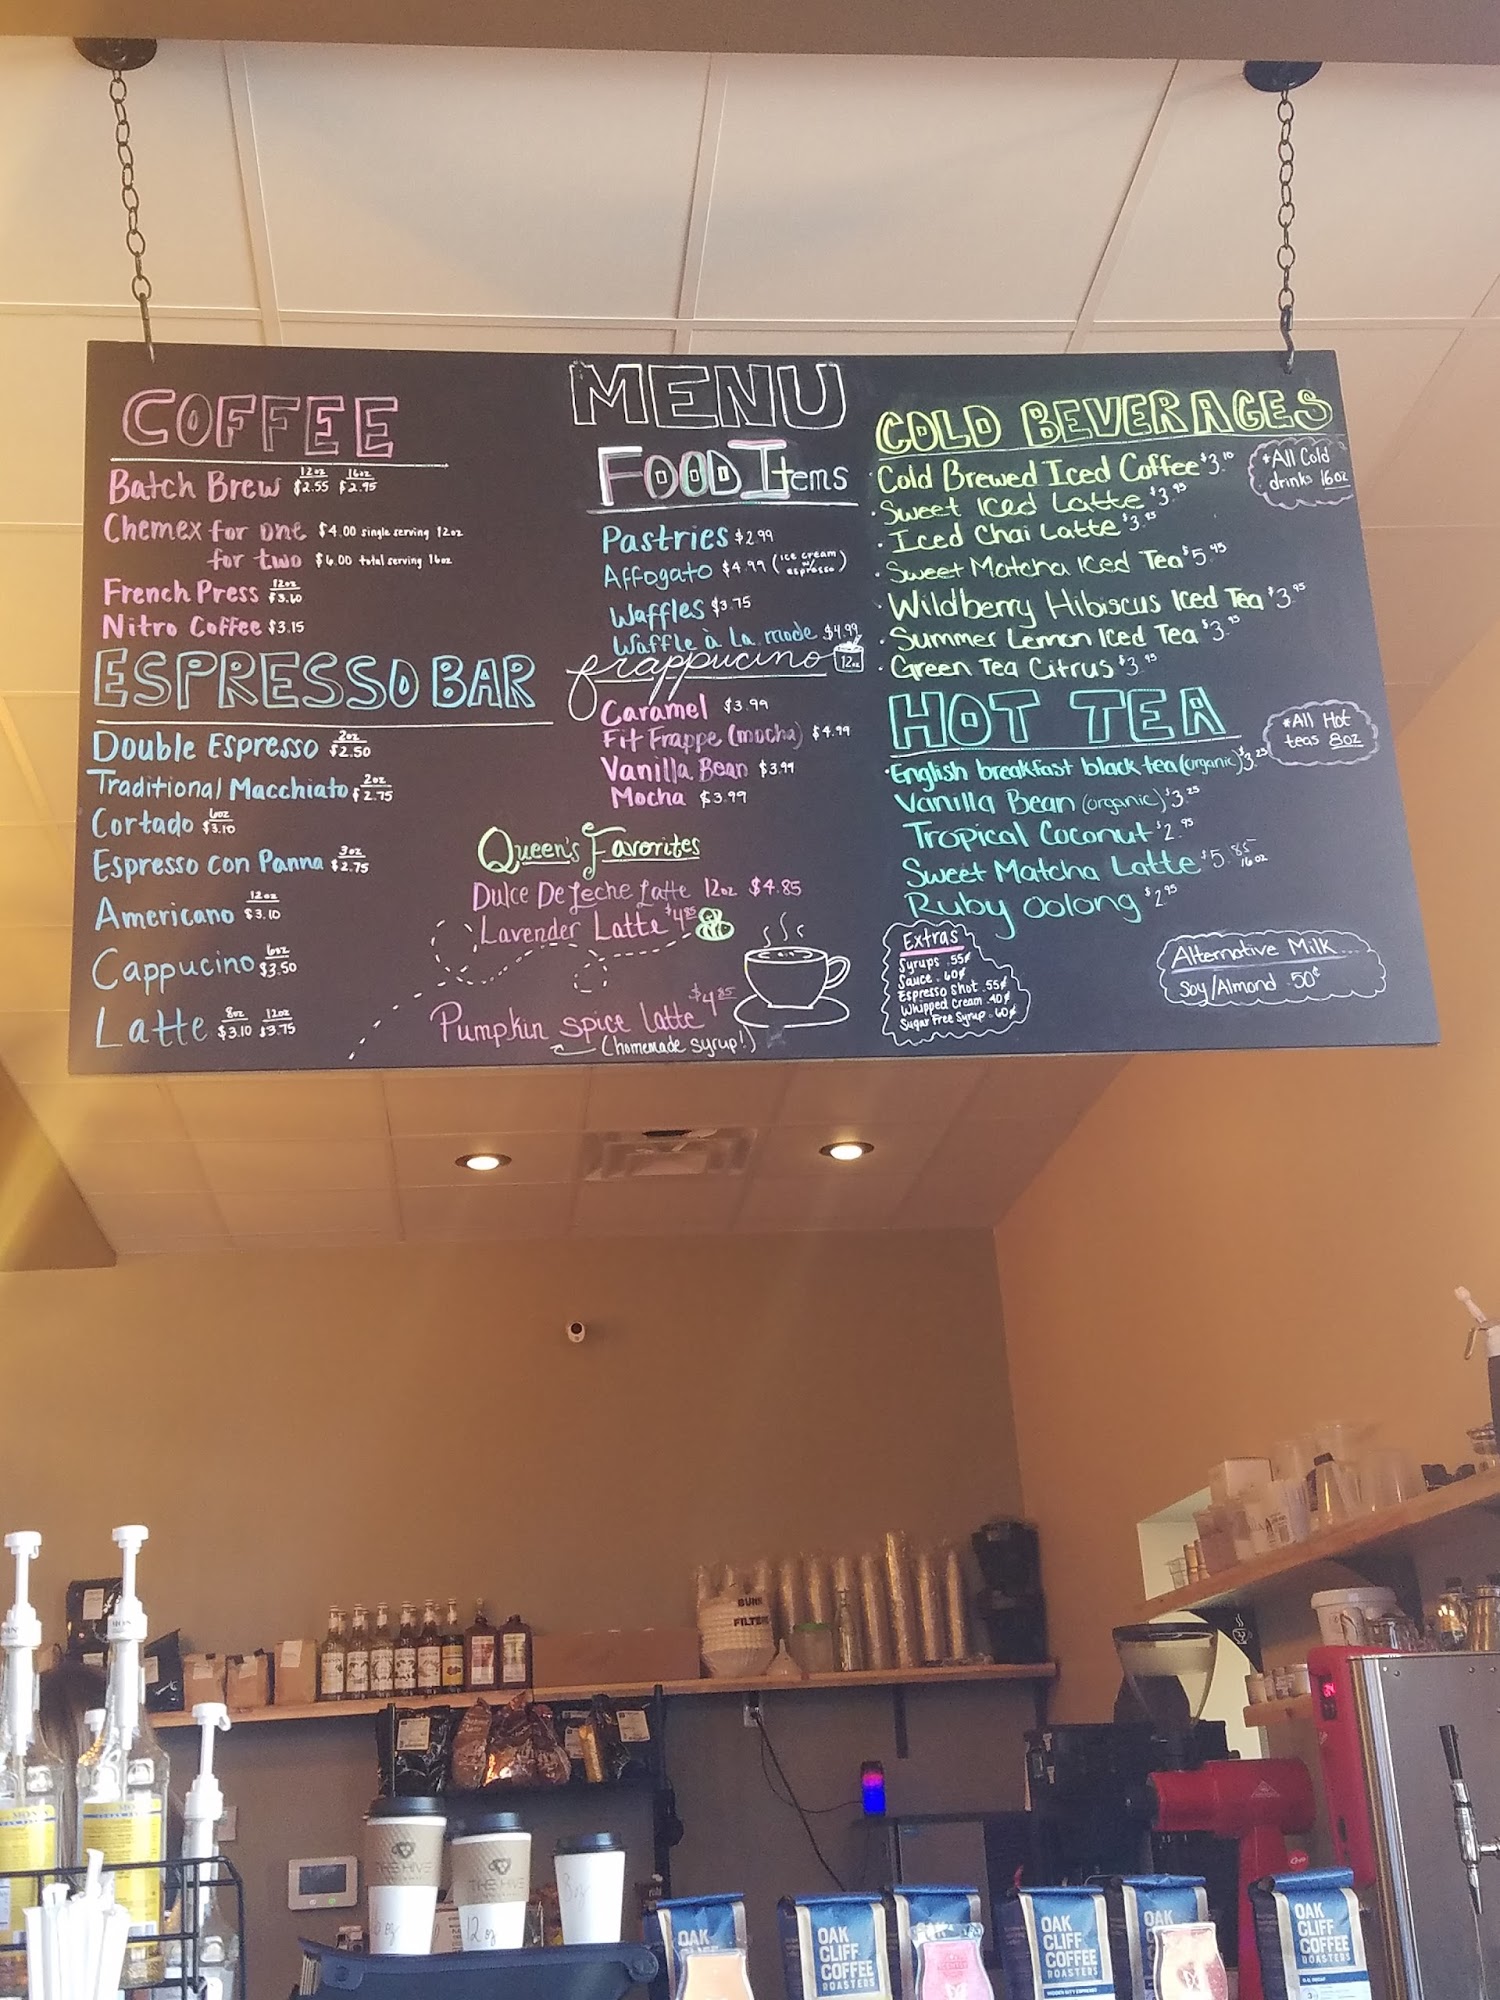 MENU
COFFEE
Batch Brew 12oz $2.55 16oz $2.95
Chemex for one $4.00 single serving 12oz
for two $6.00 total serving 16oz
French Press 12oz $3.60
Nitro Coffee $3.15
ESPRESSO BAR
Double Espresso 2oz $2.50
Traditional Macchiato 2oz $2.75
Cortado 6oz $3.10
Espresso con Panna 3oz $2.75
Americano 12oz $3.10
Cappucino 6oz $3.50
Latte 8oz $3.10 12oz $3.75
FOOD Items
Pastries $2.99
Affogato $4.99 (ice cream w/ espresso)
Waffles $3.75
Waffle à La mode $4.99
frappucino 12oz
Caramel $3.99
Fit Frappe (mocha) $4.99
Vanilla Bean $3.99
Mocha $3.99
Queen's Favorites
Dulce De Leche Latte 12oz $4.85
Lavender Latte $4.85
Pumpkin spice latte $4.85
(homemade syrup!)
COLD BEVERAGES
*All Cold
drinks 16oz
Cold Brewed Iced Coffee $3.10
Sweet Iced Latte $3.95
Iced Chai Latte $3.85
Sweet Matcha Iced Tea $5.45
Wildberry Hibiscus Iced Tea $3.95
Summer Lemon Iced Tea $3.95
Green Tea Citrus $3.95
HOT TEA
*All Hot
teas 8oz
English breakfast black tea (organic) $3.25
Vanilla Bean (organic) $3.25
Tropical Coconut $2.95
Sweet Matcha Latte $5.85 16oz
Ruby Oolong $2.95
Extras
Syrups .55¢
Sauce .60¢
Espresso Shot .55¢
Whipped Cream .40¢
Sugar Free Syrup .60¢
Alternative Milk...
Soy/Almond .50¢
BUNN
FILTERS
THE HIVE
THE HIVE
12oz
OAK
CLIFF
OAK
CLIFF
COFFEE
ROASTERS
OAK
OAK
CLIFF
COFFEE
ROASTERS
OAK
OAK
CLIFF
COFFEE
ROASTERS